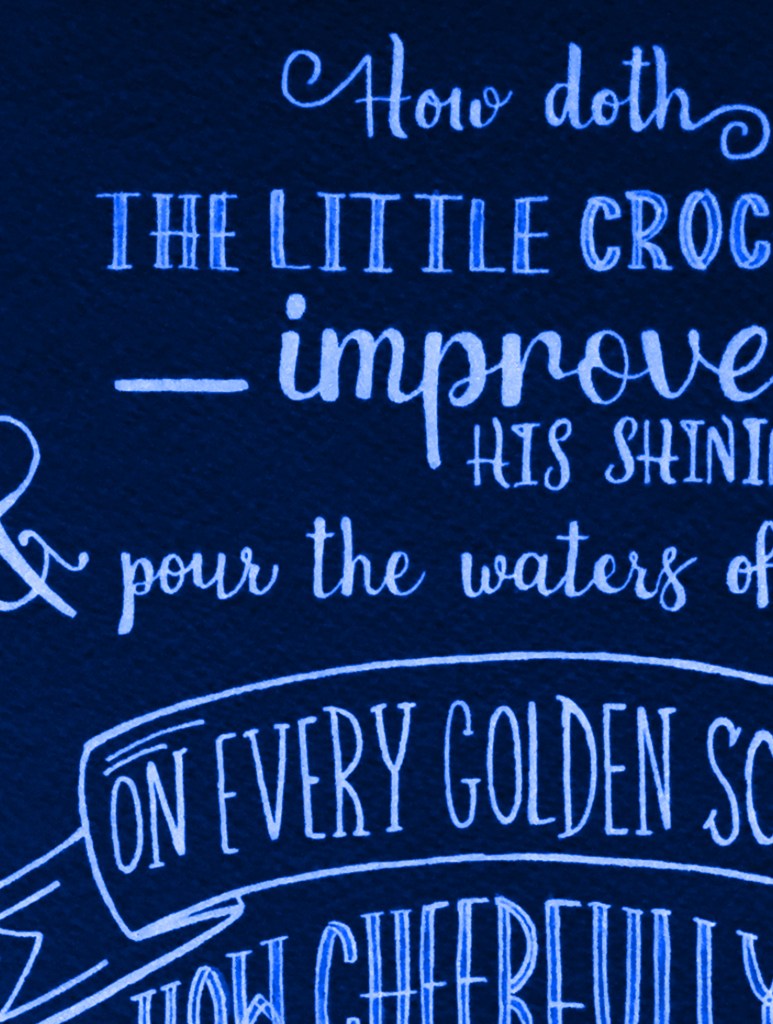 How doth
THE LITTLE CROC
— improve
HIS SHINI
& pour the waters of
ON EVERY GOLDEN SC
HOW CHEERFULLY